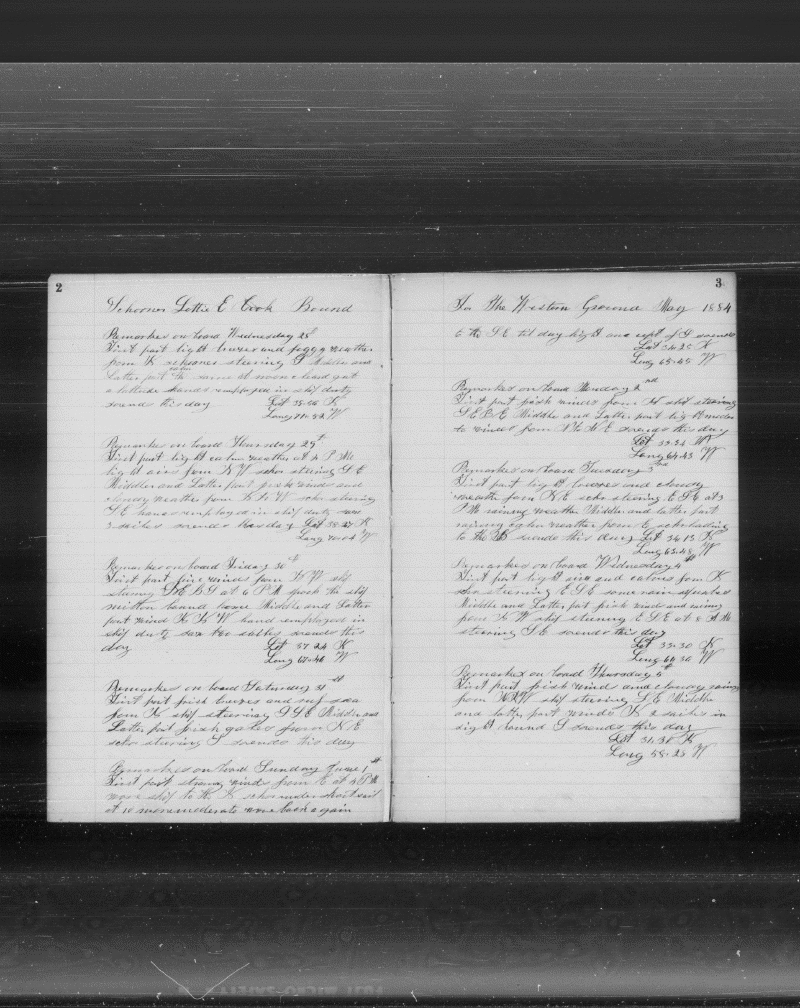 2
Schooner Lottie E Cook Bound
Remarks on board Wednesday 28th
First part light breezes and foggy weather
from N schooner steering S Middle and
Latter part calm
ends this day Lat 38-56 N
Long 71-52 W
Remarks on board Thursday 29th
First part light calm weather at 4 P M
light airs from N W schr steering S E
Middle and Latter part fresh winds and
cloudy weather from N N W schr steering
S E hands employed in ship duty saw
3 sailes so ends this day Lat 38-27 N
Long 70-04 W
Remarks on board Friday 30th
First part fine winds from N W ship
steering S E B S at 6 P M spoke the ship
bound home Middle and Latter
part wind N N W hand employed in
ship duty saw two sailes so ends this
day Lat 37-24 N
Long 67-46 W
Remarks on board Saturday 31st
First part fresh breezes and ruf sea
from N ship steering S S E Middle and
Latter part fresh gales from N E
schr steering S so ends this day
Remarks on board Sunday June 1st
First part strong winds from E at 4 P M
wore ship to the N schr under short sail
at 10 more moderate wore back again
3
For The Western Ground May 1884
to the S E til day light and kept of S so ends
Lat 34-25 N
Long 65-45 W
Remarks on board Monday 2nd
First part fresh winds from N ship steering
S E B E Middle and Latter part light breezes
to winds from N to N E so ends this day
Lat 33-34 N
Long 64-43 W
Remarks on board Tuesday 3rd
First part light breezes and cloudy
weather from N E schr steering E S E at 3
P M raining weather Middle and latter part
raining weather from E schr heading
to the so ends this day Lat 34-13 N
Long 63-48 W
Remarks on board Wednesday 4th
First part light airs and calms from N
schr steering E S E some rain squalls
Middle and Latter part fresh winds and rainy
from N W ship steering E S E at 8 A M
steering S E so ends this day
Lat 33-30 N
Long 61-36 W
Remarks on board Thursday 5th
First part fresh wind and cloudy rainy
from N W ship steering S E Middle
and latter part winds N 2 sailes in
sight bound S so ends this day
Lat 31-38 N
Long 58-23 W